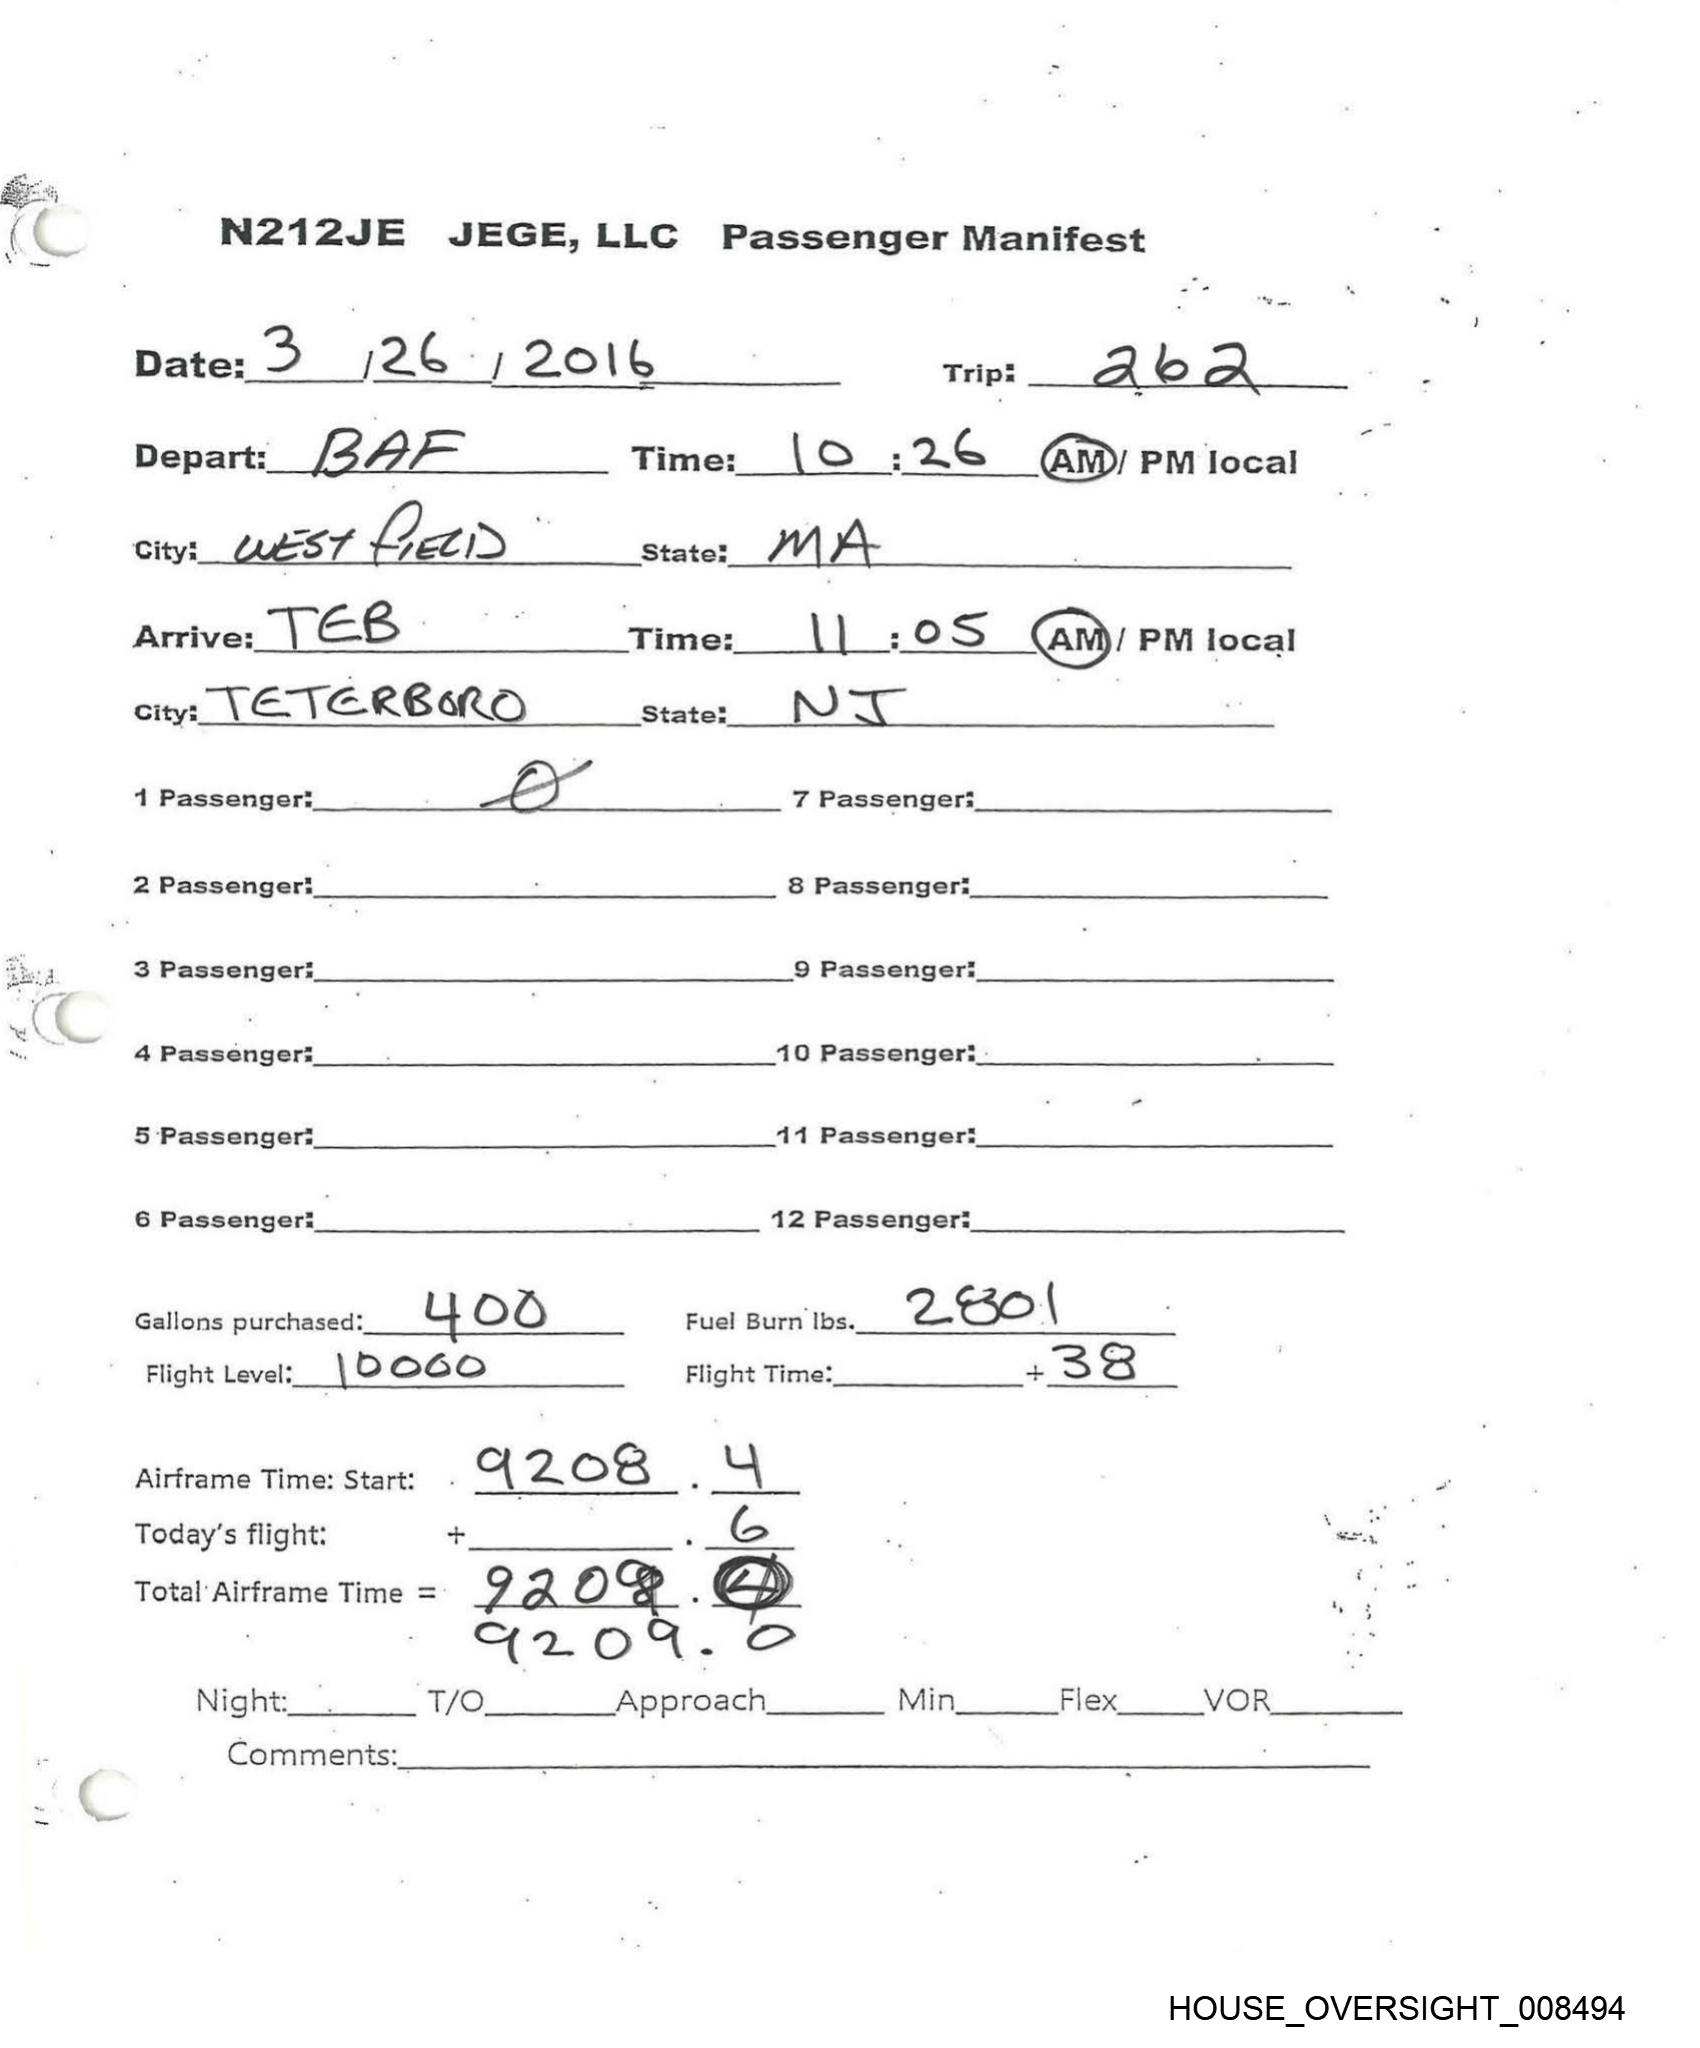 N212JE JEGE, LLC Passenger Manifest
Date: 3 / 26 / 2016 Trip: 262
Depart: BAF Time: 10 : 26 AM / PM local
City: WESTFIELD State: MA
Arrive: TEB Time: 11 : 05 AM / PM local
City: TETERBORO State: NJ
1 Passenger: 0 7 Passenger:
2 Passenger: 8 Passenger:
3 Passenger: 9 Passenger:
4 Passenger: 10 Passenger:
5 Passenger: 11 Passenger:
6 Passenger: 12 Passenger:
Gallons purchased: 400 Fuel Burn lbs. 2801
Flight Level: 10000 Flight Time: + 38
Airframe Time: Start: 9208 . 4
Today's flight: + . 6
Total Airframe Time =
9209.0
Night: T/O Approach Min Flex VOR
Comments:
HOUSE_OVERSIGHT_008494